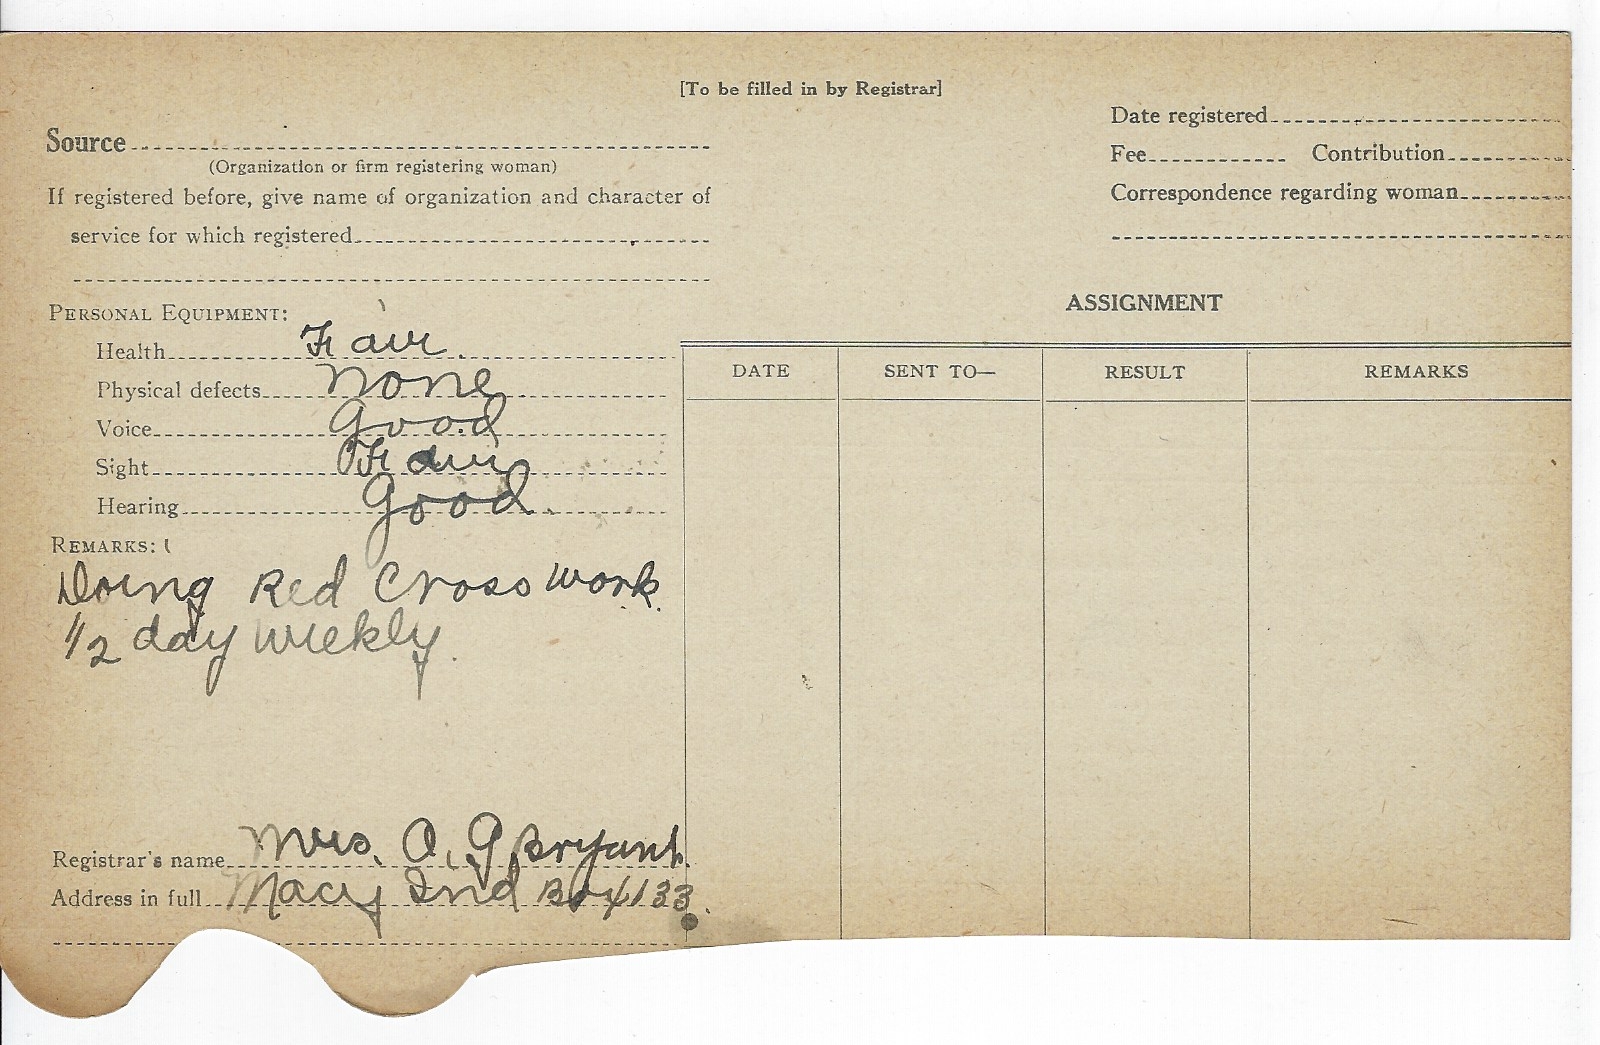 [To be filled in by Registrar]
Source
(Organization or firm registering woman)
If registered before, give name of organization and character of
service for which registered
Date registered
Fee Contribution
Correspondence regarding woman
PERSONAL EQUIPMENT:
Health Fair.
Physical defects none
Voice Good
Sight Fair
Hearing Good.
REMARKS:
Doing Red Cross Work.
1/2 day weekly.
Registrar's name Mrs. O. G. Bryant.
Address in full Macy Ind Box 133.
ASSIGNMENT
DATE SENT TO— RESULT REMARKS